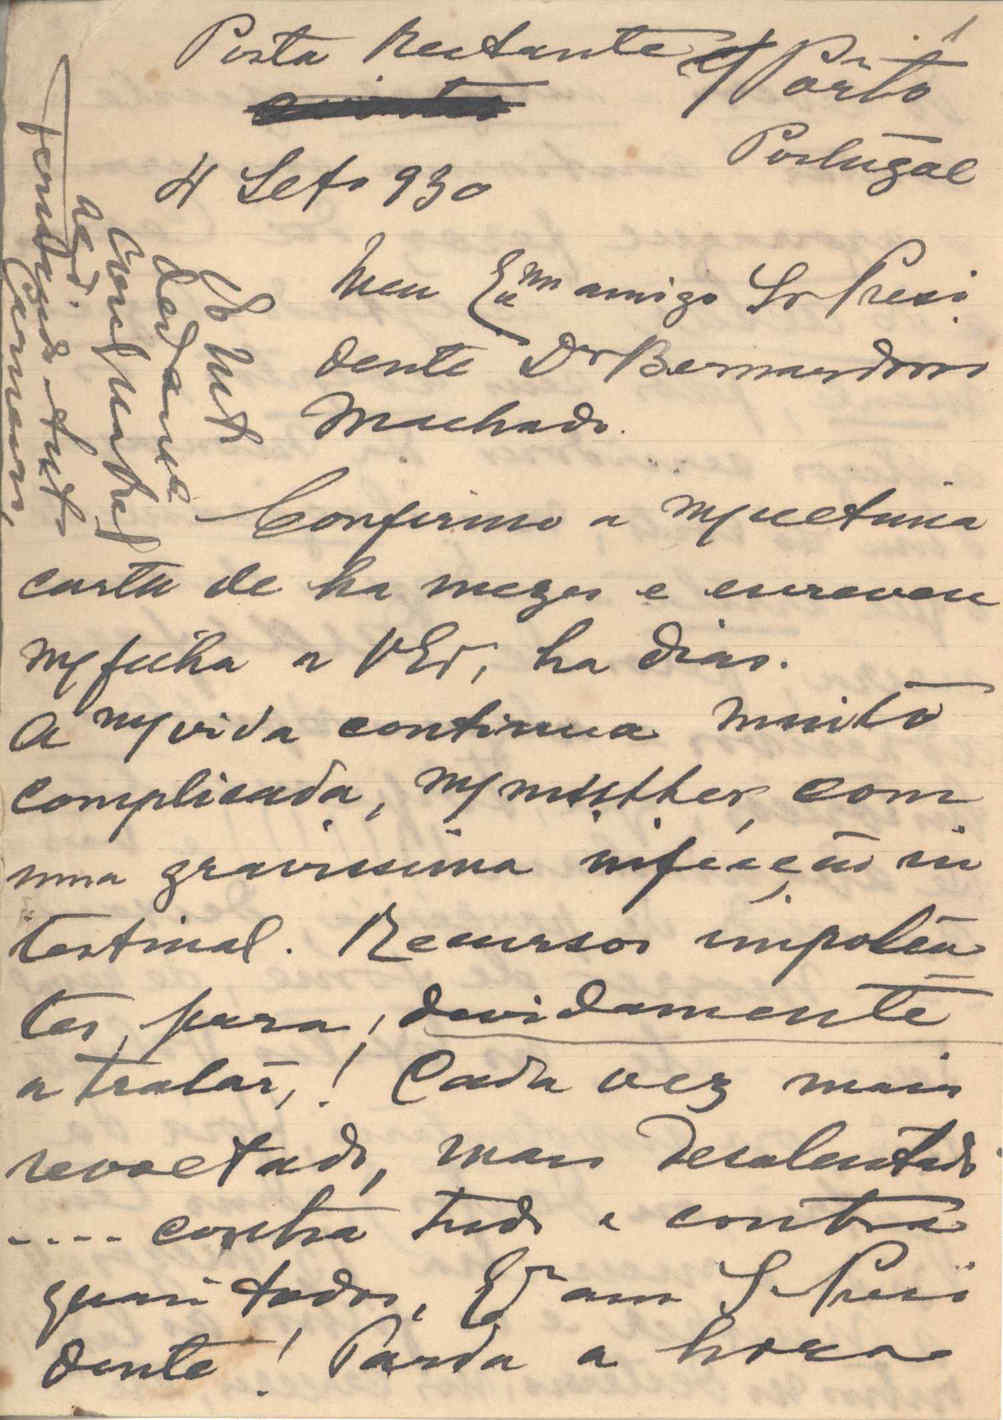 Posta Restante Pôrto
Portugal
4 Seto 930
Meu Exmo amigo Sr Presi
dente Dr Bernardino
Machado.
Confirmo a m/ ultima
carta de ha mezes e escreveu
m/ filha a VExa, ha dias.
A m/ vida continua muito
complicada, m/ mulher, com
uma gravissima infecção in
testinal. Recursos impoten
tes, para, devidamente
a tratar,! Cada vez mais
revoltado, mais desalentado
.... contra tudo e contra
quasi todos, Exmo am Sr Presi
dente! Parda a hora
Do Mto
Dedicado